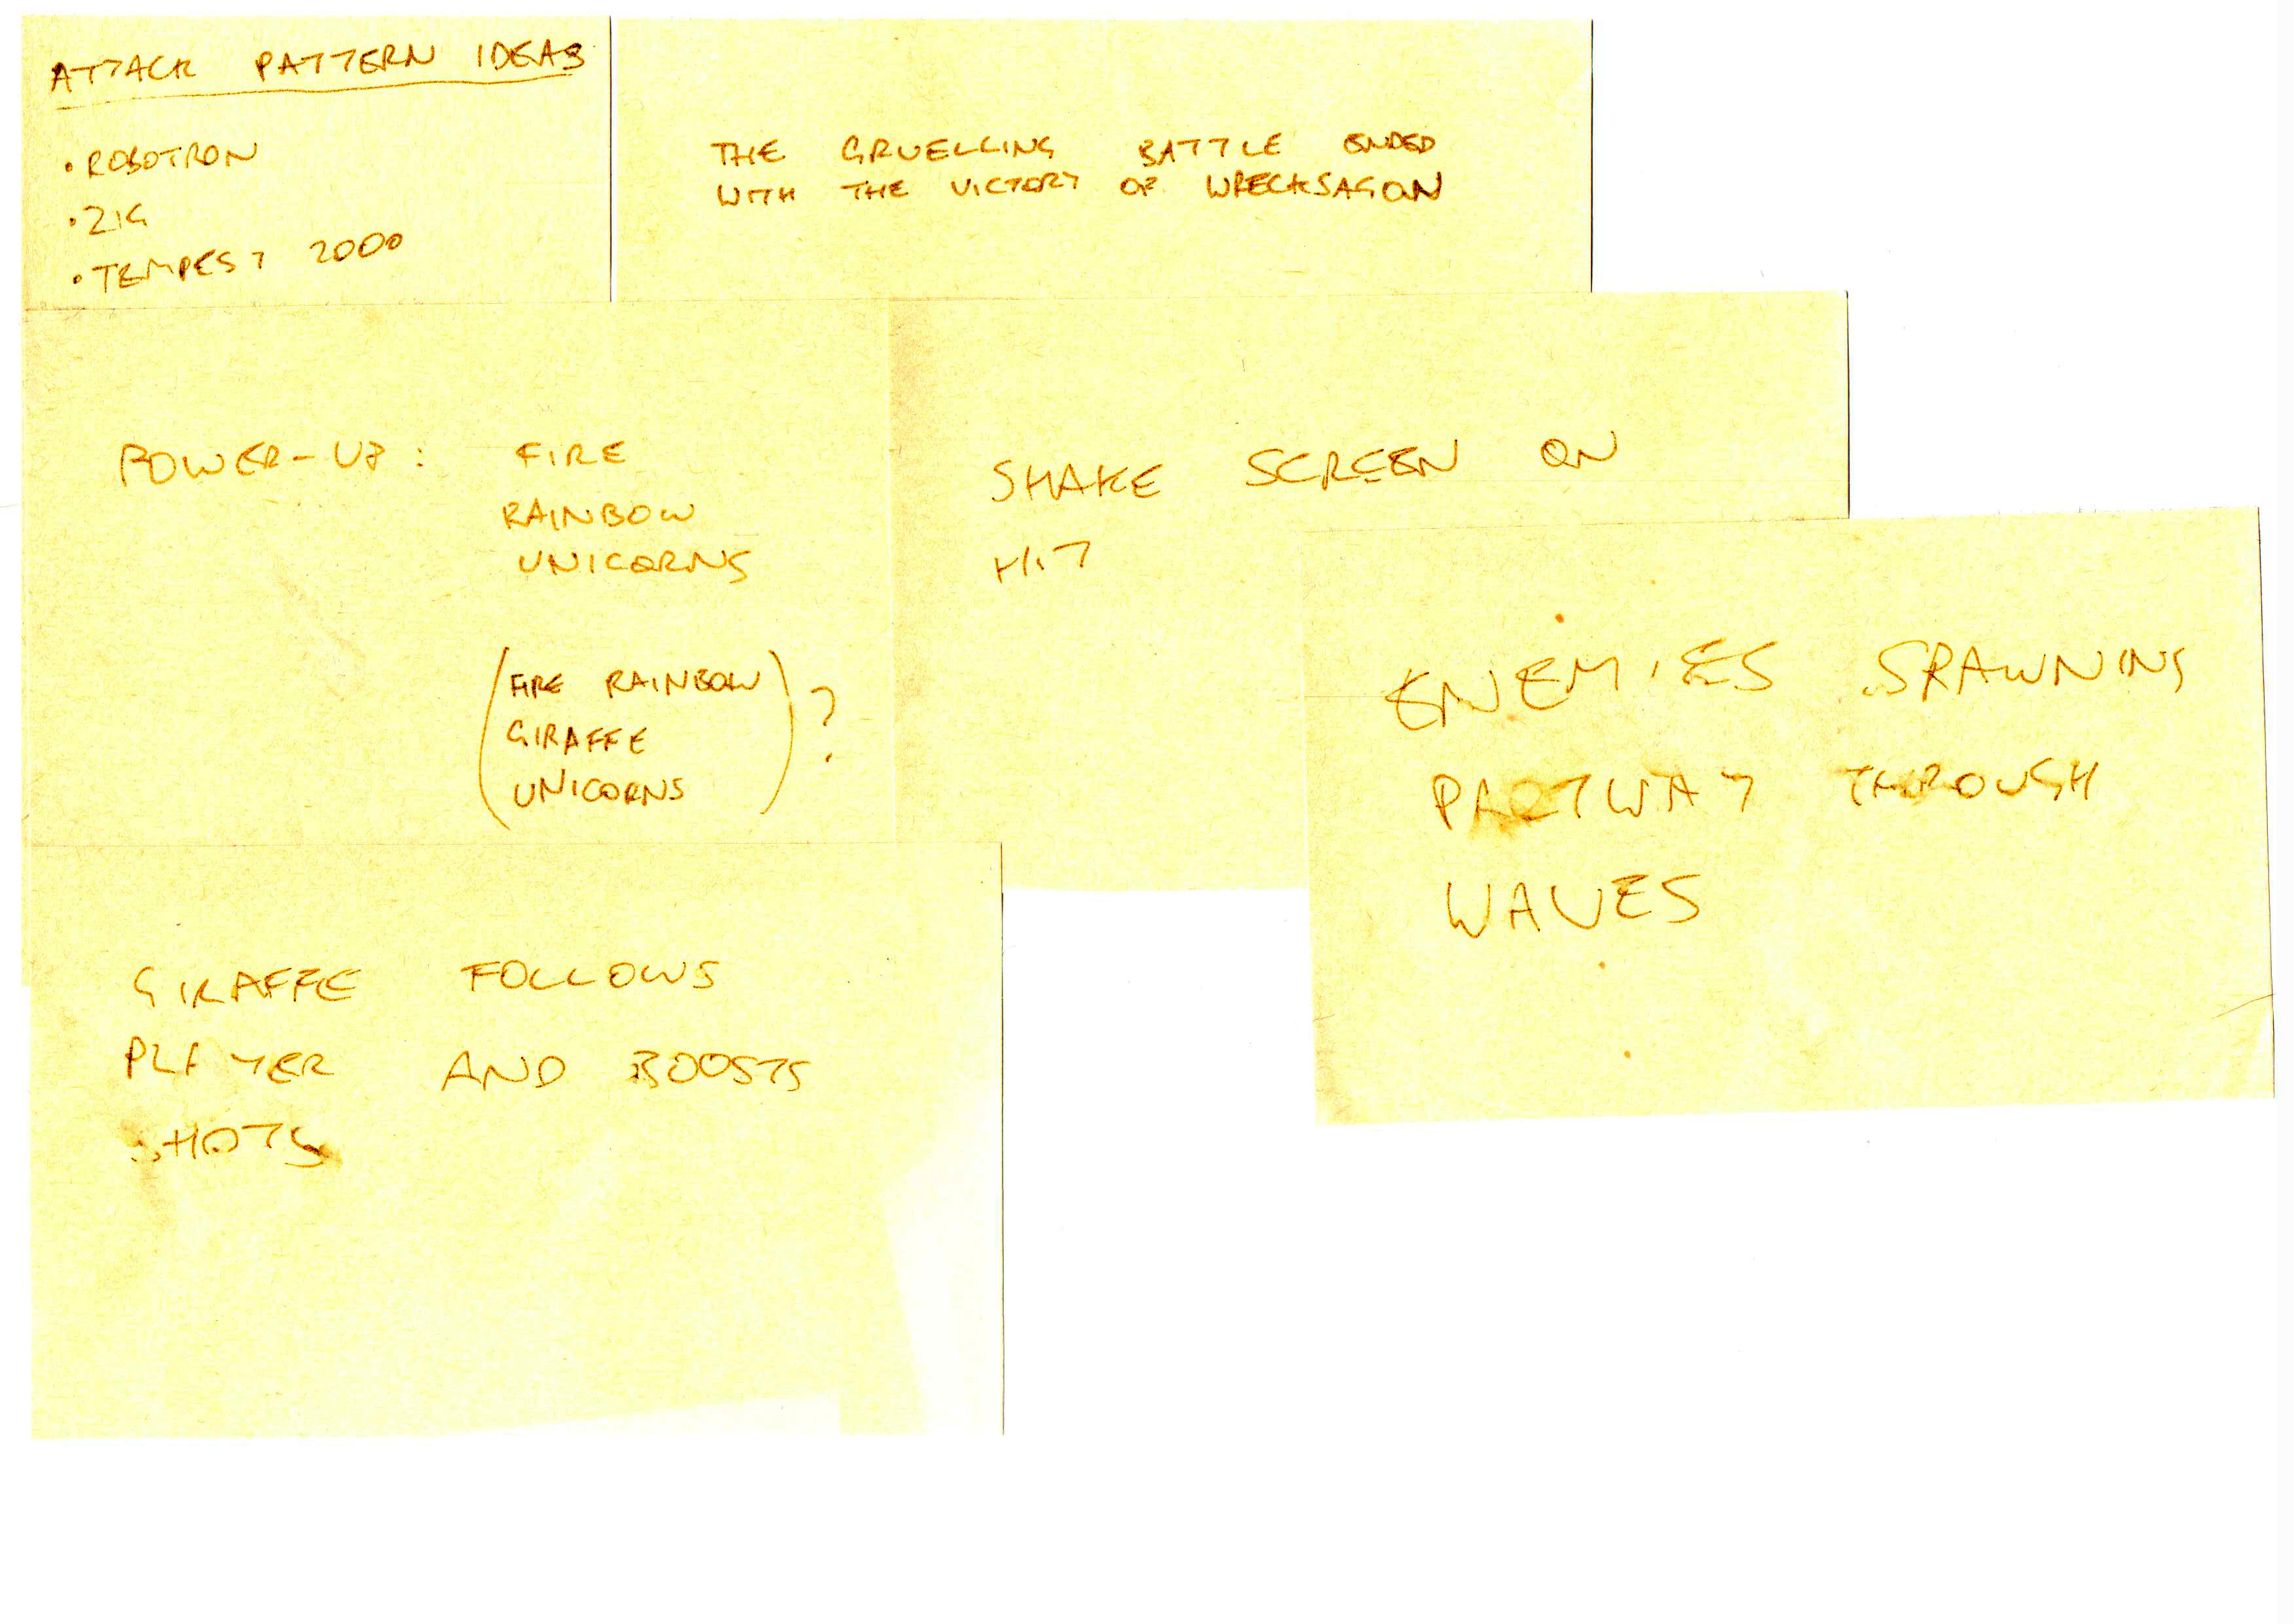 ATTACK PATTERN IDEAS
• ROBOTRON
• ZIG
• TEMPEST 2000
THE GRUELLING BATTLE ENDED
WITH THE VICTORY OF WRECKSAGON
POWER-UP: FIRE
RAINBOW
UNICORNS
(FIRE RAINBOW
GIRAFFE
UNICORNS)?
SHAKE SCREEN ON
HIT
ENEMIES SPAWNING
PARTWAY THROUGH
WAVES
GIRAFFE FOLLOWS
PLAYER AND BOOSTS
SHOTS